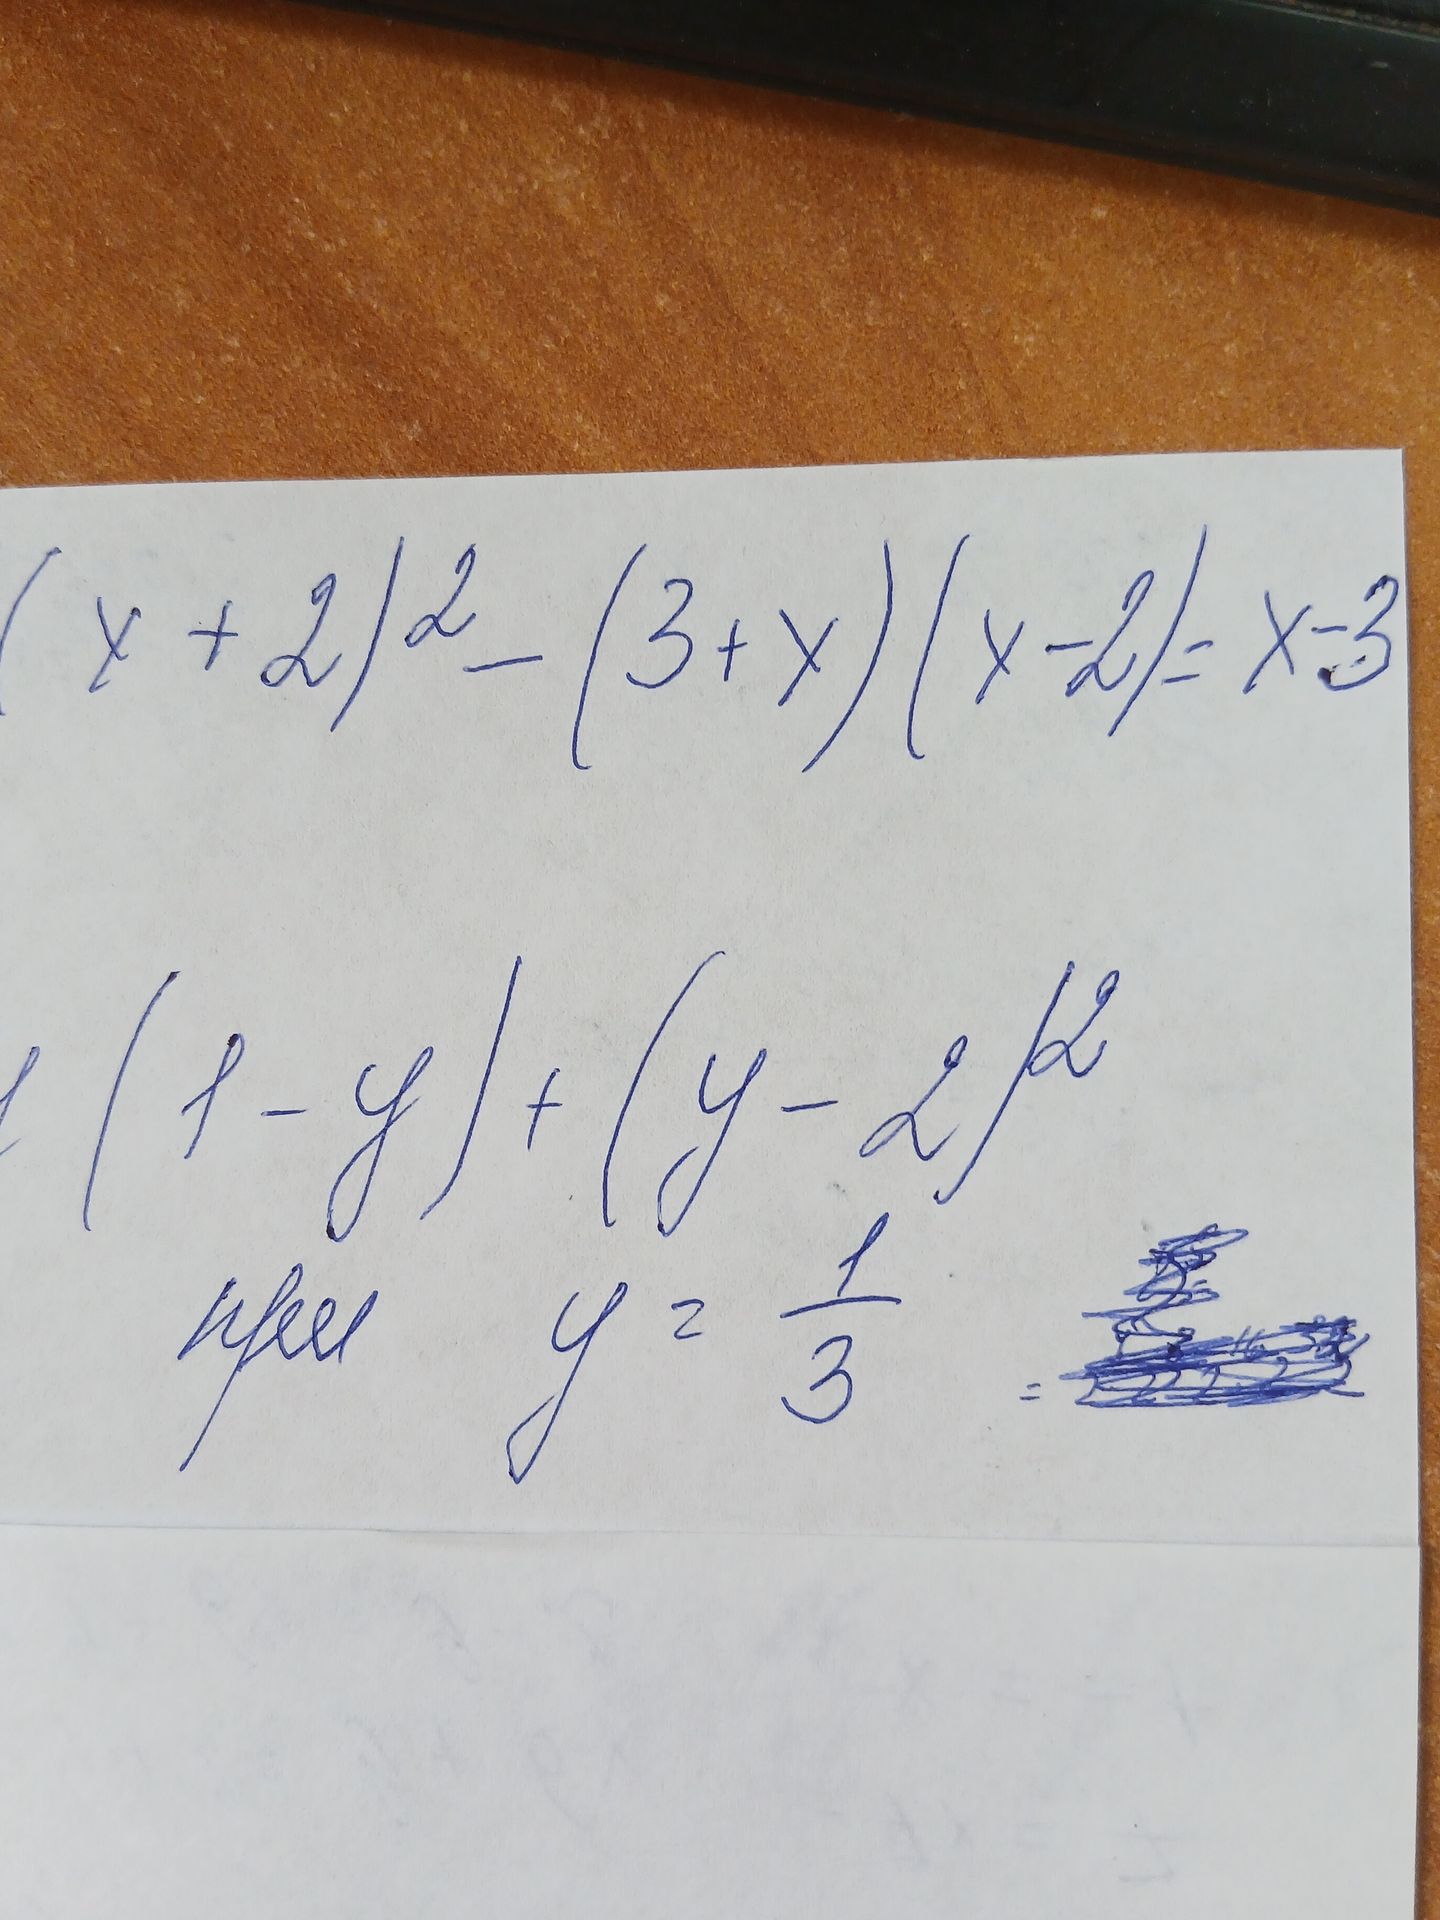 (x+2)² - (3+x)(x-2) = x-3
(1-y) + (y-2)²
при y = 1/3 =